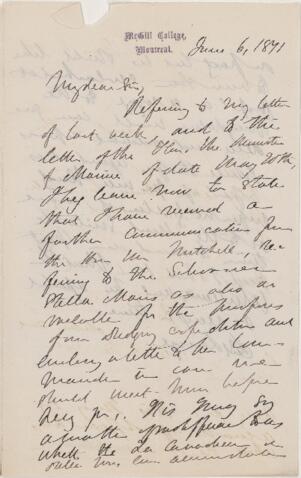 McGill College,
Montreal.
June 6, 1871
My dear Sir,
Referring to my letter
of last week, and to the
letter of the Hon. the Minister
of Marine of date May 30th,
I beg leave now to state
that I have received a
further communication from
the Hon Mr Mitchell, re-
ferring to the Schooner
Stella Maris as also as
available for the purposes
of our dredging expedition and
enclosing a letter to her Com-
mander in case we
should meet him before
Has
when the La Canadienne or
Stella Maris